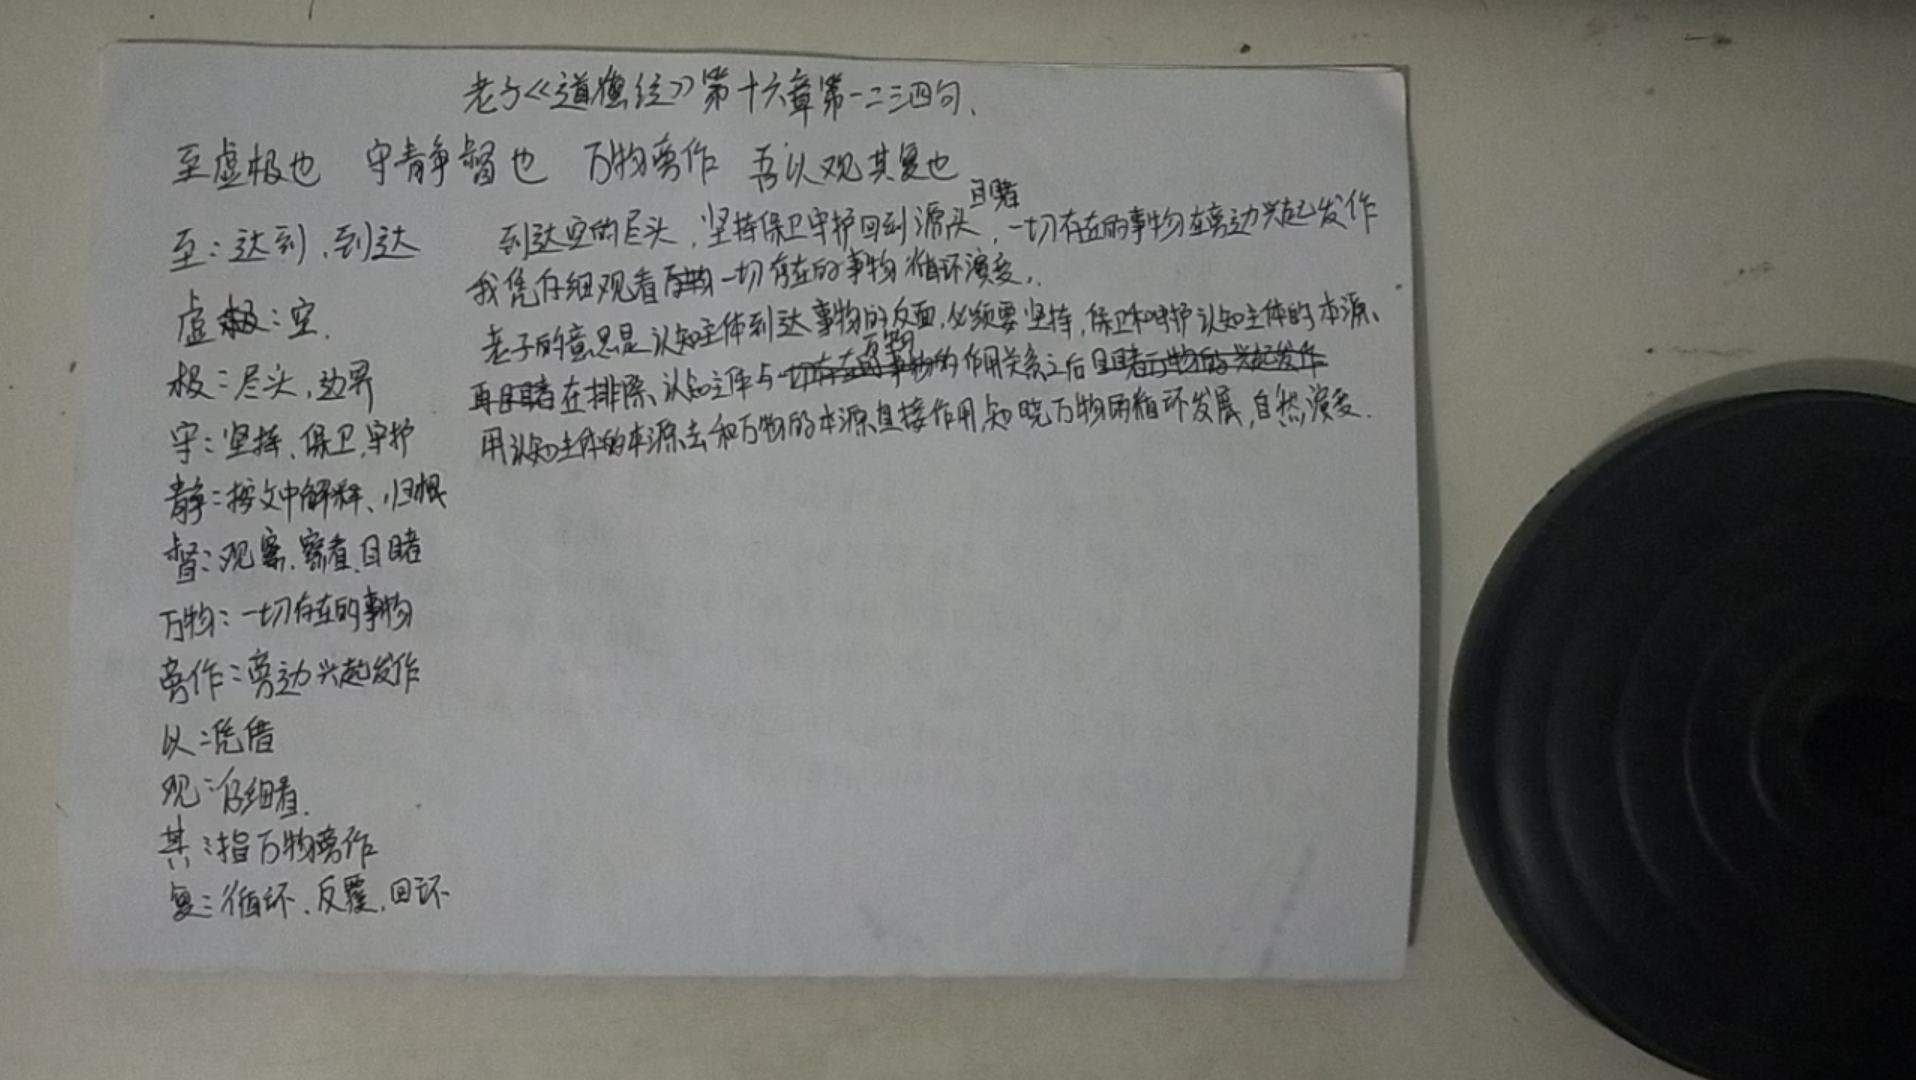 老子《道德经》第十六章第一二三四句、
至虚极也 守静督也 万物旁作 吾以观其复也
至：达到、到达
虚：空.
极：尽头，边界
守：坚持、保卫、守护
静：按文中解释、归根
督：观察、察看、目睹
万物：一切存在的事物
旁作：旁边兴起发作
以：凭借
观：仔细看.
其：指万物旁作
复：循环、反覆、回环
到达空的尽头，坚持保卫守护回到源头目睹，一切存在的事物在旁边兴起发作
我凭仔细观看一切存在的事物循环演变.
老子的意思是认知主体到达事物的反面，必须要坚持，保卫和守护认知主体的本源、
在排除认知主体与万物的作用关系之后
用认知主体的本源去和万物的本源直接作用，知晓万物的循环发展，自然演变.